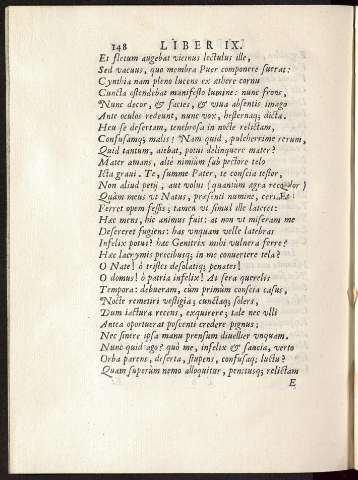 148 LIBER IX.
Et fletum augebat vicinus lectulus ille,
Sed vacuus, quo membra Puer componere suerat:
Cynthia nam pleno lucens ex æthere cornu
Cuncta ostendebat manifesto lumine: nunc frons,
Nunc decor, & facies, & viua absentis imago
Ante oculos redeunt, nunc vox, hesternaq; dicta.
Heu se desertam, tenebrosa in nocte relictam,
Confusamq; malis! Nam quid, pulcherrime rerum,
Quid tantum, aiebat, potui delinquere mater?
Mater amans, alte nimium sub pectore telo
Icta graui. Te, summe Pater, te conscia testor,
Non aliud petij, aut volui (quantum agra recordor)
Quàm meus vt Natus, præsenti numine,
Ferret opem fessis; tamen vt simul ille lateret:
Hac mens, hic animus fuit: at non vt miseram me
Desereret fugiens: has vnquam velle latebras
Infelix potui? hæc Genitrix mihi vulnera ferre?
Hæc lacrymis precibusq; in me conuertere tela?
O Nate! ô tristes desolatiq; penates!
O domus! ô patria infelix! At sera querelis
Tempora: debueram, cùm primùm conscia casus,
Nocte remetiri vestigia; cunctaq; solers,
Dum iactura recens, exquirere; tale nec vlli
Antea oportuerat poscenti credere pignus;
Nec sinere ipsa manu prensum diuellier vnquam.
Nunc quid ago? quò me, infelix & saucia, verto
Orba parens, deserta, stupens, confusaq; luctu?
Quam superûm nemo alloquitur, penitusq; relictam
E